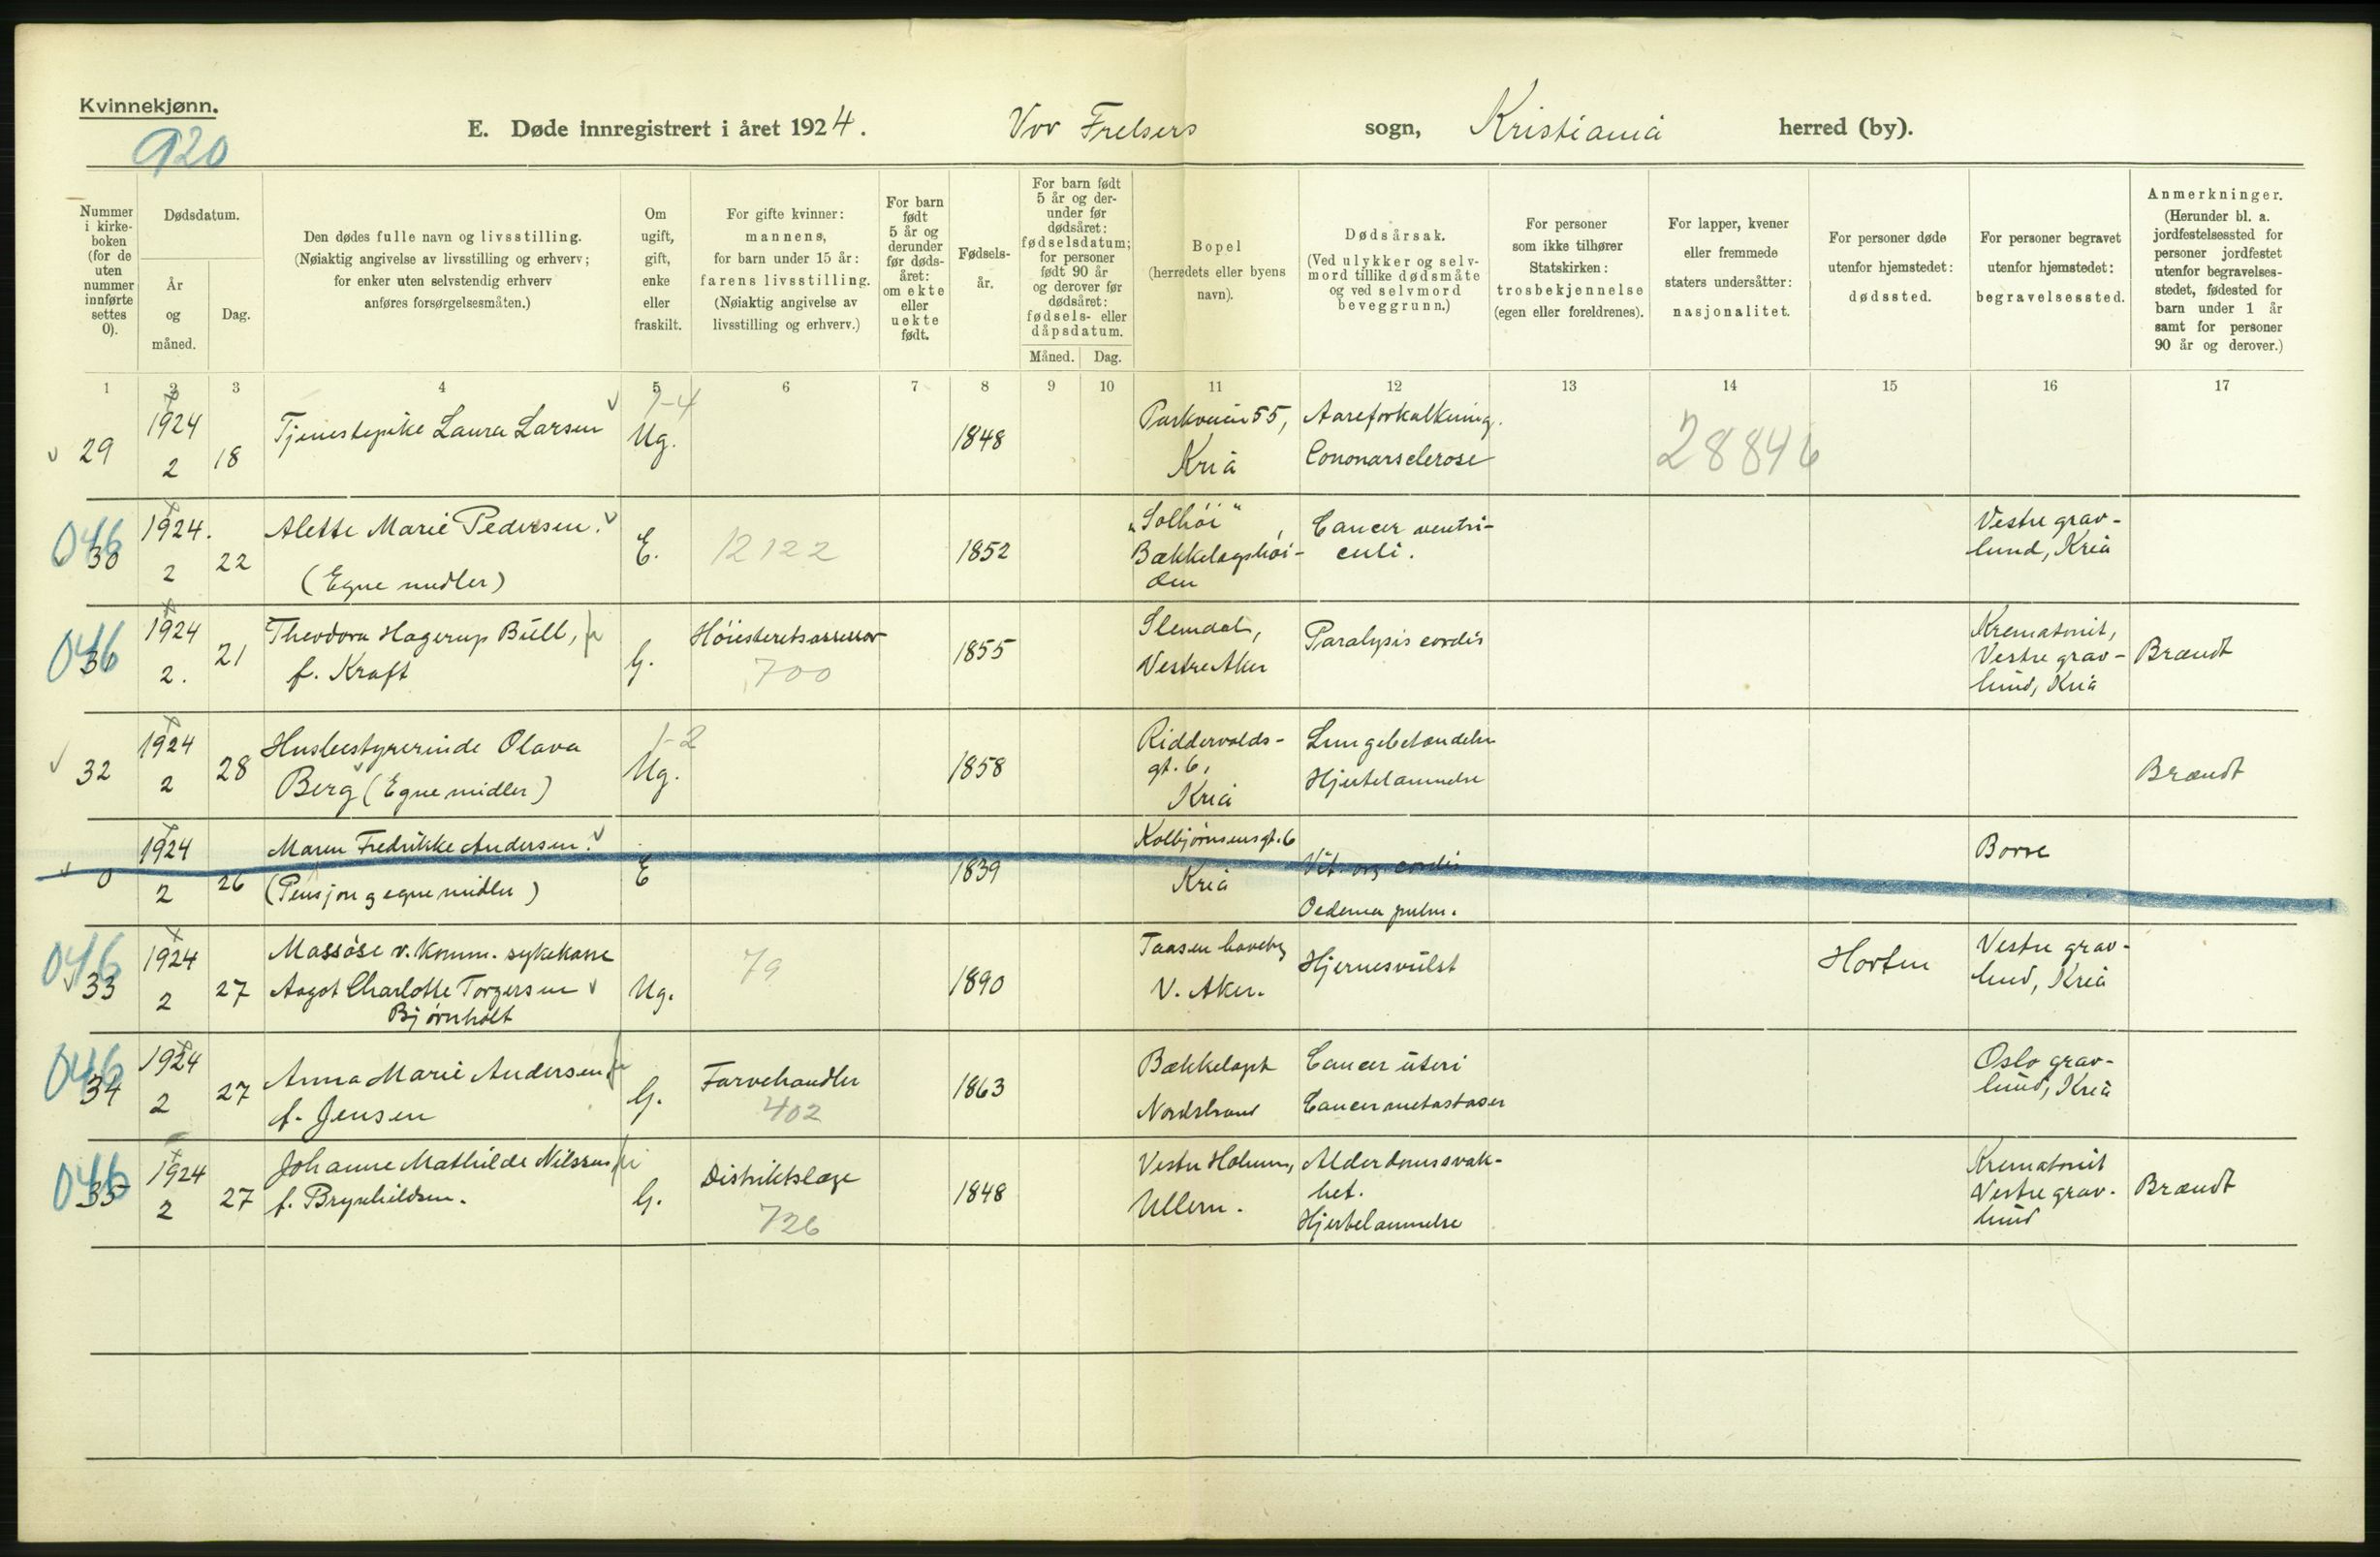 Kvinnekjønn.
920
E. Døde innregistrert i året 1924. Vor Frelsers sogn, Kristiania herred (by).
Nummer
i kirke-
boken
(for de
uten
nummer
innførte
settes
0).
Dødsdatum.
År
og
måned.
Dag.
Den dødes fulle navn og livsstilling.
(Nøiaktig angivelse av livsstilling og erhverv;
for enker uten selvstendig erhverv
anføres forsørgelsesmåten.)
Om
ugift,
gift,
enke
eller
fraskilt.
For gifte kvinner:
mannens,
for barn under 15 år:
farens livsstilling.
(Nøiaktig angivelse av
livsstilling og erhverv.)
For barn
født
5 år og
derunder
før døds-
året:
om ekte
eller
uekte
født.
Fødsels-
år.
For barn født
5 år og der-
under før
dødsåret:
fødselsdatum;
for personer
født 90 år
og derover før
dødsåret:
fødsels- eller
dåpsdatum.
Måned. Dag.
Bopel
(herredets eller byens
navn).
Dødsårsak.
(Ved ulykker og selv-
mord tillike dødsmåte
og ved selvmord
beveggrunn.)
For personer
som ikke tilhører
Statskirken:
trosbekjennelse
(egen eller foreldrenes).
For lapper, kvener
eller fremmede
staters undersåtter:
nasjonalitet.
For personer døde
utenfor hjemstedet:
dødssted.
For personer begravet
utenfor hjemstedet:
begravelsessted.
Anmerkninger.
(Herunder bl. a.
jordfestelsessted for
personer jordfestet
utenfor begravelses-
stedet, fødested for
barn under 1 år
samt for personer
90 år og derover.)
1 2 3 4 5 6 7 8 9 10 11 12 13 14 15 16 17
29
1924
2
18
Tjenestepike Laura Larsen
1-4
Ug.
1848
Parkveien 55,
Kria
Aareforkalkning.
Cononarsclerose
28846
046
30
1924.
2
22
Alette Marie Pedersen.
(Egne midler)
E.
12122
1852
"Solhöi",
Bækkelagshöi-
den
Cancer ventri-
culi.
Vestre grav-
lund, Kria
046
36
1924
2.
21
Theodora Hagerup Bull,
f. Kraft
G.
Höiesteretsassessor
700
1855
Slemdal,
Vestre Aker
Paralysis cordis
Krematoriet,
Vestre grav-
lund, Kria
Brændt
32
1924
2
28
Husbestyrerinde Olava
Berg (Egne midler)
1-2
Ug.
1858
Riddervolds-
gt. 6,
Kria
Lungebetændelse
Hjertelammelse
Brændt
0
1924
2
26
Maren Fredrikke Andersen.
(Pensjon og egne midler)
E
1839
Kolbjørnsensgt. 6
Kria
Vit. org. cordis
Oedema pulm.
Borre
046
33
1924
2
27
Massöse v. Komm. sykekasse
Aagot Charlotte Torgersen
Bjørnholt
Ug.
79
1890
Taasen haveby
V. Aker.
Hjernesvulst
Horten
Vestre grav-
lund, Kria
046
34
1924
2
27
Anna Marie Andersen
f. Jensen
G.
Farvehandler
402
1863
Bækkelaget
Nordstrand
Cancer uteri
Cancer metastaser
Oslo grav-
lund, Kria
046
35
1924
2
27
Johanne Mathilde Nilssen
f. Brynhildsen.
G.
Distriktslæge
726
1848
Vestre Holmen,
Ullern.
Alderdomssvak-
het.
Hjertelammelse
Krematoriet
Vestre grav-
lund
Brændt